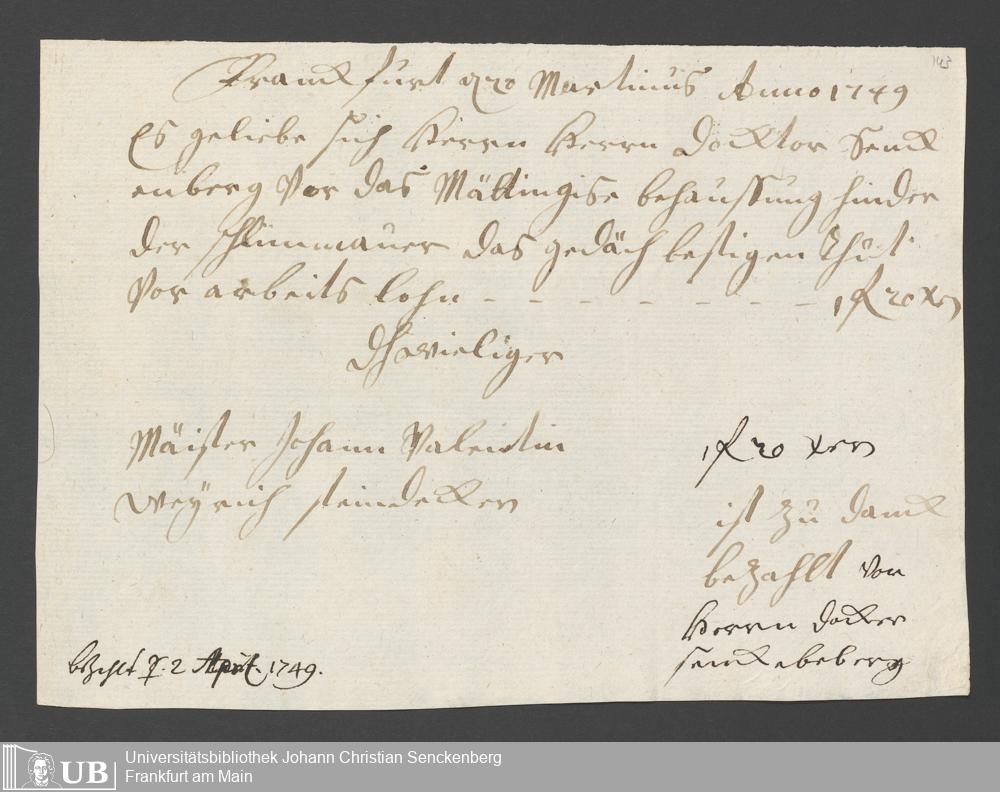 143
Franckfurt d 20 Martiuus Anno 1749
Es geliebe sich Herrn Herrn Docktor Senck
enberg Vor das behaussung hinder
der schlimmauer das gedäch bestigen Thut
Vor arbeits lohn - - - - - - - 1 fl 20 xer
Dhswieliger
Mäister Johann Valentin
Weyrich steindecker
1 fl 20 xer
ist zu danck
bezahlt von
Herrn docker
senckebeberg
bezahlt d. 2 April. 1749.
UB
Universitätsbibliothek Johann Christian Senckenberg
Frankfurt am Main